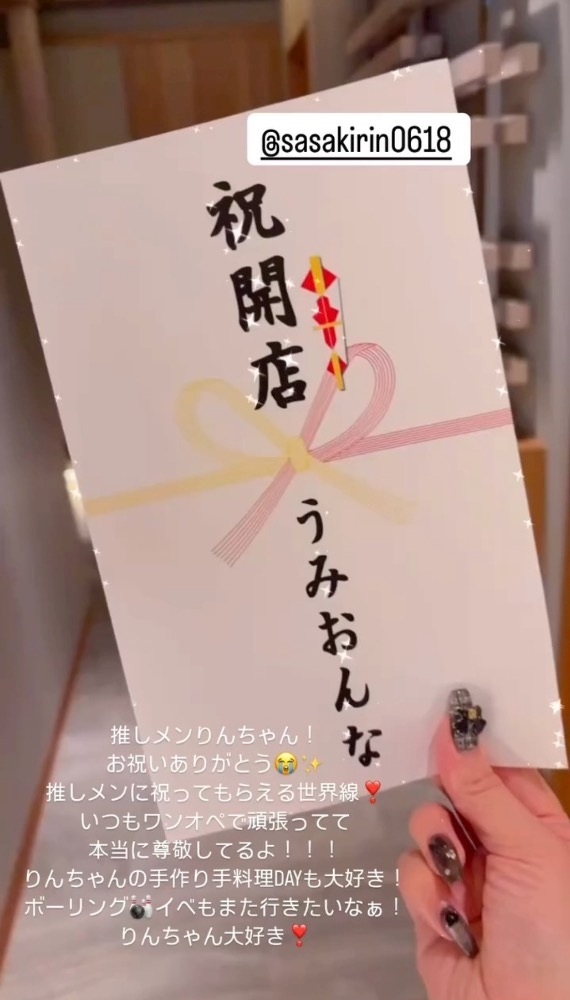 @sasakirin0618
祝開店
うみおんな
推しメンりんちゃん！
お祝いありがとう😭✨
推しメンに祝ってもらえる世界線❣️
いつもワンオペで頑張ってて
本当に尊敬してるよ！！！
りんちゃんの手作り手料理DAYも大好き！
ボーリング🎳イベもまた行きたいなぁ！
りんちゃん大好き❣️